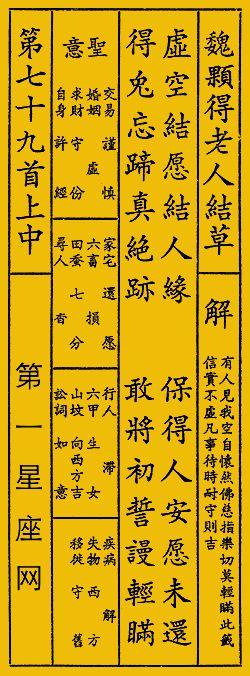 魏顆得老人結草
解
有人見我空自懷然佛慈指樂切莫輕瞞此籤
信實不虛凡事待時耐守則吉
虛空結愿結人緣　保得人安愿未還
得兔忘蹄真絕跡　敢將初誓謾輕瞞
聖意
交易　謹慎
婚姻　虛
求財　守份
自身　許經
家宅　還愿
六畜　損
田蚕　七分
尋人　杳
行人　滯
六甲　生女
山坟　向西方吉
訟詞　如意
疾病　解
失物　西方
移徙　守舊
第七十九首上中
第一星座网